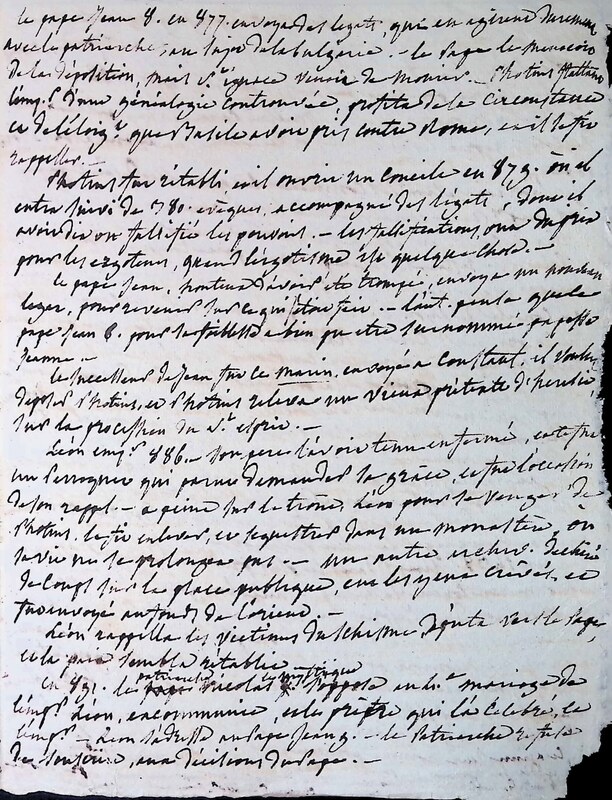 le pape Jean 8. en 877. envoya des légats, qui en agirent durement
avec le patriarche, au sujet de la bulgarie. - le Pape le menaçoit
de la déposition, mais St. ignace venoit de mourir. - Photius flattant
l'empr. d'une généalogie controuvée, profita de la circonstance
et de l'éloigt. que Basile avoit pris contre Rome, et il se fit
rappeller. -
Photius fut rétabli et il ouvrit un Concile en 879. où il
entra suivi de 380. evêques, accompagné des légats, dont il
avoit dit on falsifié les pouvoirs. - les falsifications, ont du prix
pour les ergoteurs, quand l'ergotisme est quelque chose. -
le pape Jean, honteux d'avoir été trompé, envoya un nouveau
legat, pour revenir sur ce qui étoit fait. - l'aut. pense que le
pape Jean 8. pour sa foiblesse a bien pu etre surnommé papesse
Jeanne. -
le successeur de Jean fut ce marin, envoyé a Constant. il voulut
deposer Photius, et Photius releva un vieux prétexte d'heresie,
sur la procession du St. esprit. -
Léon empr. 886. - Son pere l'avoit tenu enfermé, et ce fut
un Perroquet qui parut demander sa grâce, et fut l'occasion
de son rappel. - a peine sur le trône, Léon pour se venger de
Photius, le fit enlever, et sequestrer dans un monastère, où
sa vie ne se prolongea pas. - un autre archev. déchiré
de coups sur la place publique, eut les yeux crévés, et
fut envoyé au fonds de l'orient. -
Léon rappella les victimes du schisme, députa vers le Pape,
et la paix sembla rétablie.
en 891. le patriarche Nicolas le mystique s'oppose au 4e. mariage de
l'empr. Léon, excommunie, et le prêtre qui l'a celebré, et
l'empr. - Léon s'adresse au Pape Jean 9. - le Patriarche refuse
de souscrire, aux décisions du Pape. -